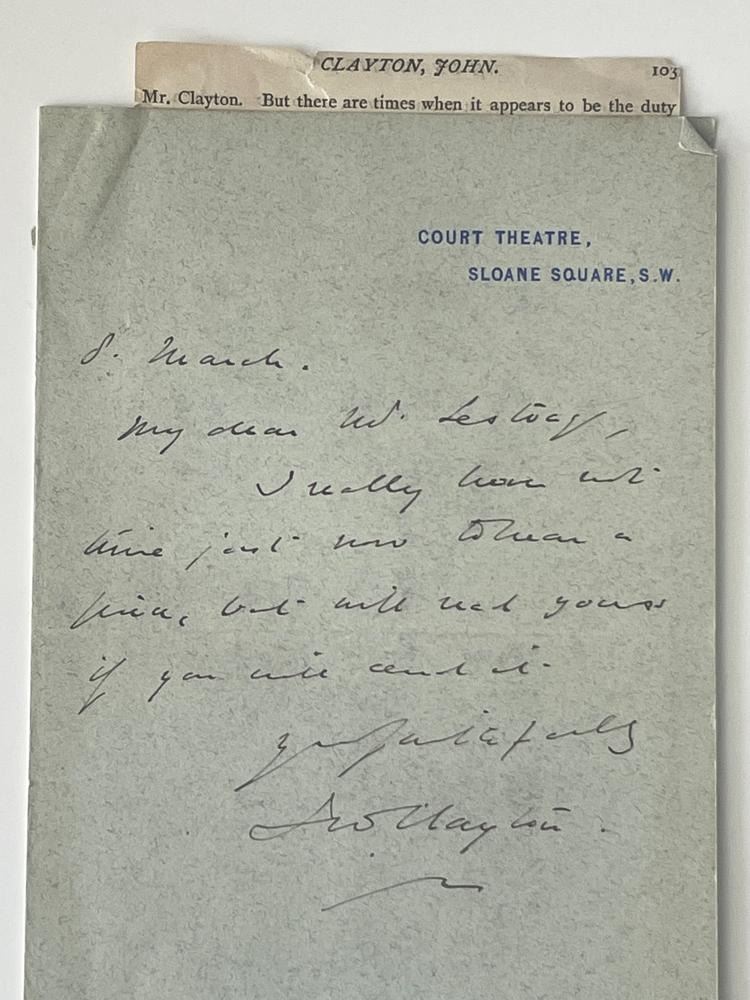 CLAYTON, JOHN. 103
Mr. Clayton. But there are times when it appears to be the duty
COURT THEATRE,
SLOANE SQUARE, S.W.
8. March.
My dear
I really have not
time just now to hear a
piece, but will read yours
if you will send it.
yrs faithfully
Jno Clayton.